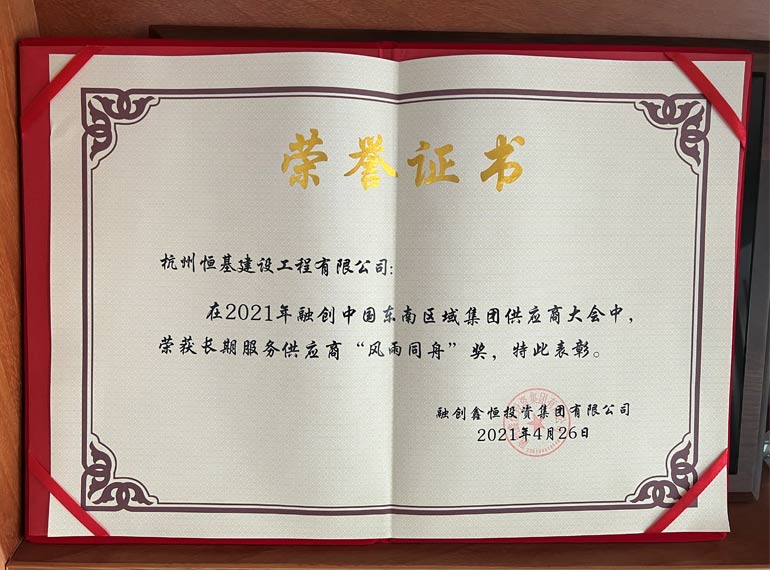 荣誉证书
杭州恒基建设工程有限公司:
在2021年融创中国东南区域集团供应商大会中,
荣获长期服务供应商“风雨同舟”奖,特此表彰。
融创鑫恒投资集团有限公司
2021年4月26日